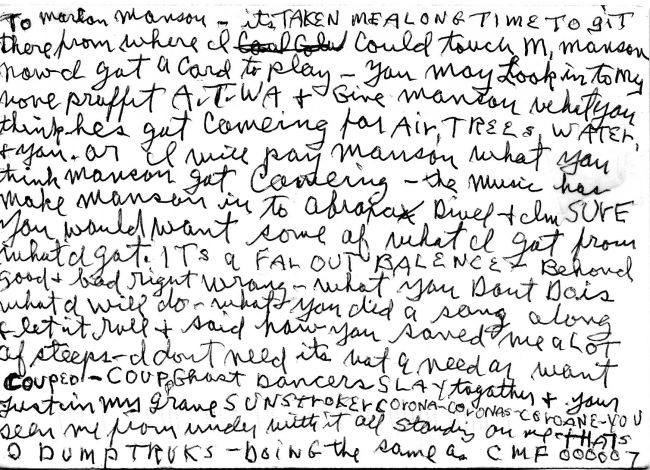 To marlon manson – its TAKEN ME A LONG TIME TO GIT
there from where I could touch M, manson
now I got a card to play – you may Look in to my
none proffit A.T.W.A + Give manson what you
think hes got comeing for Air, TREES, WATER,
+ you. or I will pay manson what you
think manson got comeing – the music has
make manson in to abrapax Divel + I'm SURE
you would want some of what I got from
what I got. ITS a FAR OUT BALENCE – Behond
good + bad right wrong – what you Dont Dois
what I will do – what you did a song along
+ let it roll + said how you saved me A LOT
of steeps – I dont need its not a need or want
COUPED – COUP, Ghost Dancers SLAY togather + your
Just in my grave SUNSTROKER CORONA-CORONAS-COROANE-YOU
seen me from under with it all standing on me THATS
2 DUMP TRUKS – DOING the same as CMF 000007